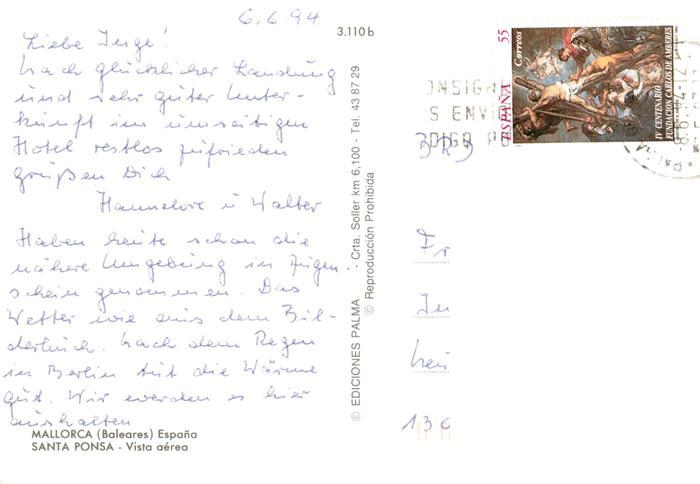 6.6.94
Liebe Inge!
Nach glücklicher Landung
und sehr guter Unter-
kunft im umseitigen
Hotel restlos zufrieden
grüßen Dich
Hannelore u Walter
Haben heute schon die
nähere Umgebung in Augen-
schein genommen. Das
Wetter wie aus dem Bil-
derbuch. Nach dem Regen
in Berlin tut die Wärme
gut. Wir werden es hier
aushalten
MALLORCA (Baleares) España
SANTA PONSA - Vista aérea
3.110 b
© EDICIONES PALMA - Crta. Soller km 6,100 - Tel. 43 87 29
© Reproducción Prohibida
NSIGN
S ENVI
DIGO
55
Correos
ESPAÑA
IV CENTENARIO
FUNDACION CARLOS DE AMBERES
Fr
In
130